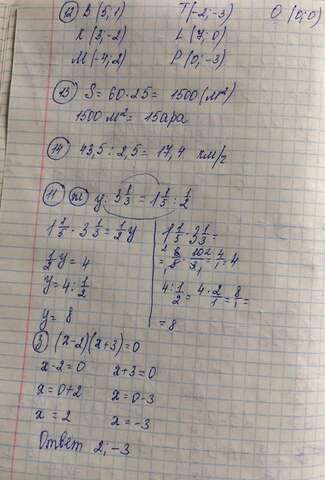 12 B (5; 1) T(-2; -3) O (0; 0)
K (3; -2) L (7; 0)
M (-4; 2) P (0; -3)
13 S = 60·25 = 1500 (м²)
1500 м² = 15 ара
14 43,5 : 2,5 = 17,4 км/г
11 y : 3 1/3 = 1 1/5 : 1/2
1 1/5 · 3 1/3 = 1/2 y
1 1/5 · 3 1/3 =
1/2 y = 4
= 6/5 · 10/3 = 4/1 = 4
y = 4 : 1/2
4 : 1/2 = 4 · 2/1 = 8/1 =
y = 8
= 8
3 (x-2)(x+3) = 0
x-2=0 x+3=0
x = 0+2 x = 0-3
x = 2 x = -3
Ответ 2; -3